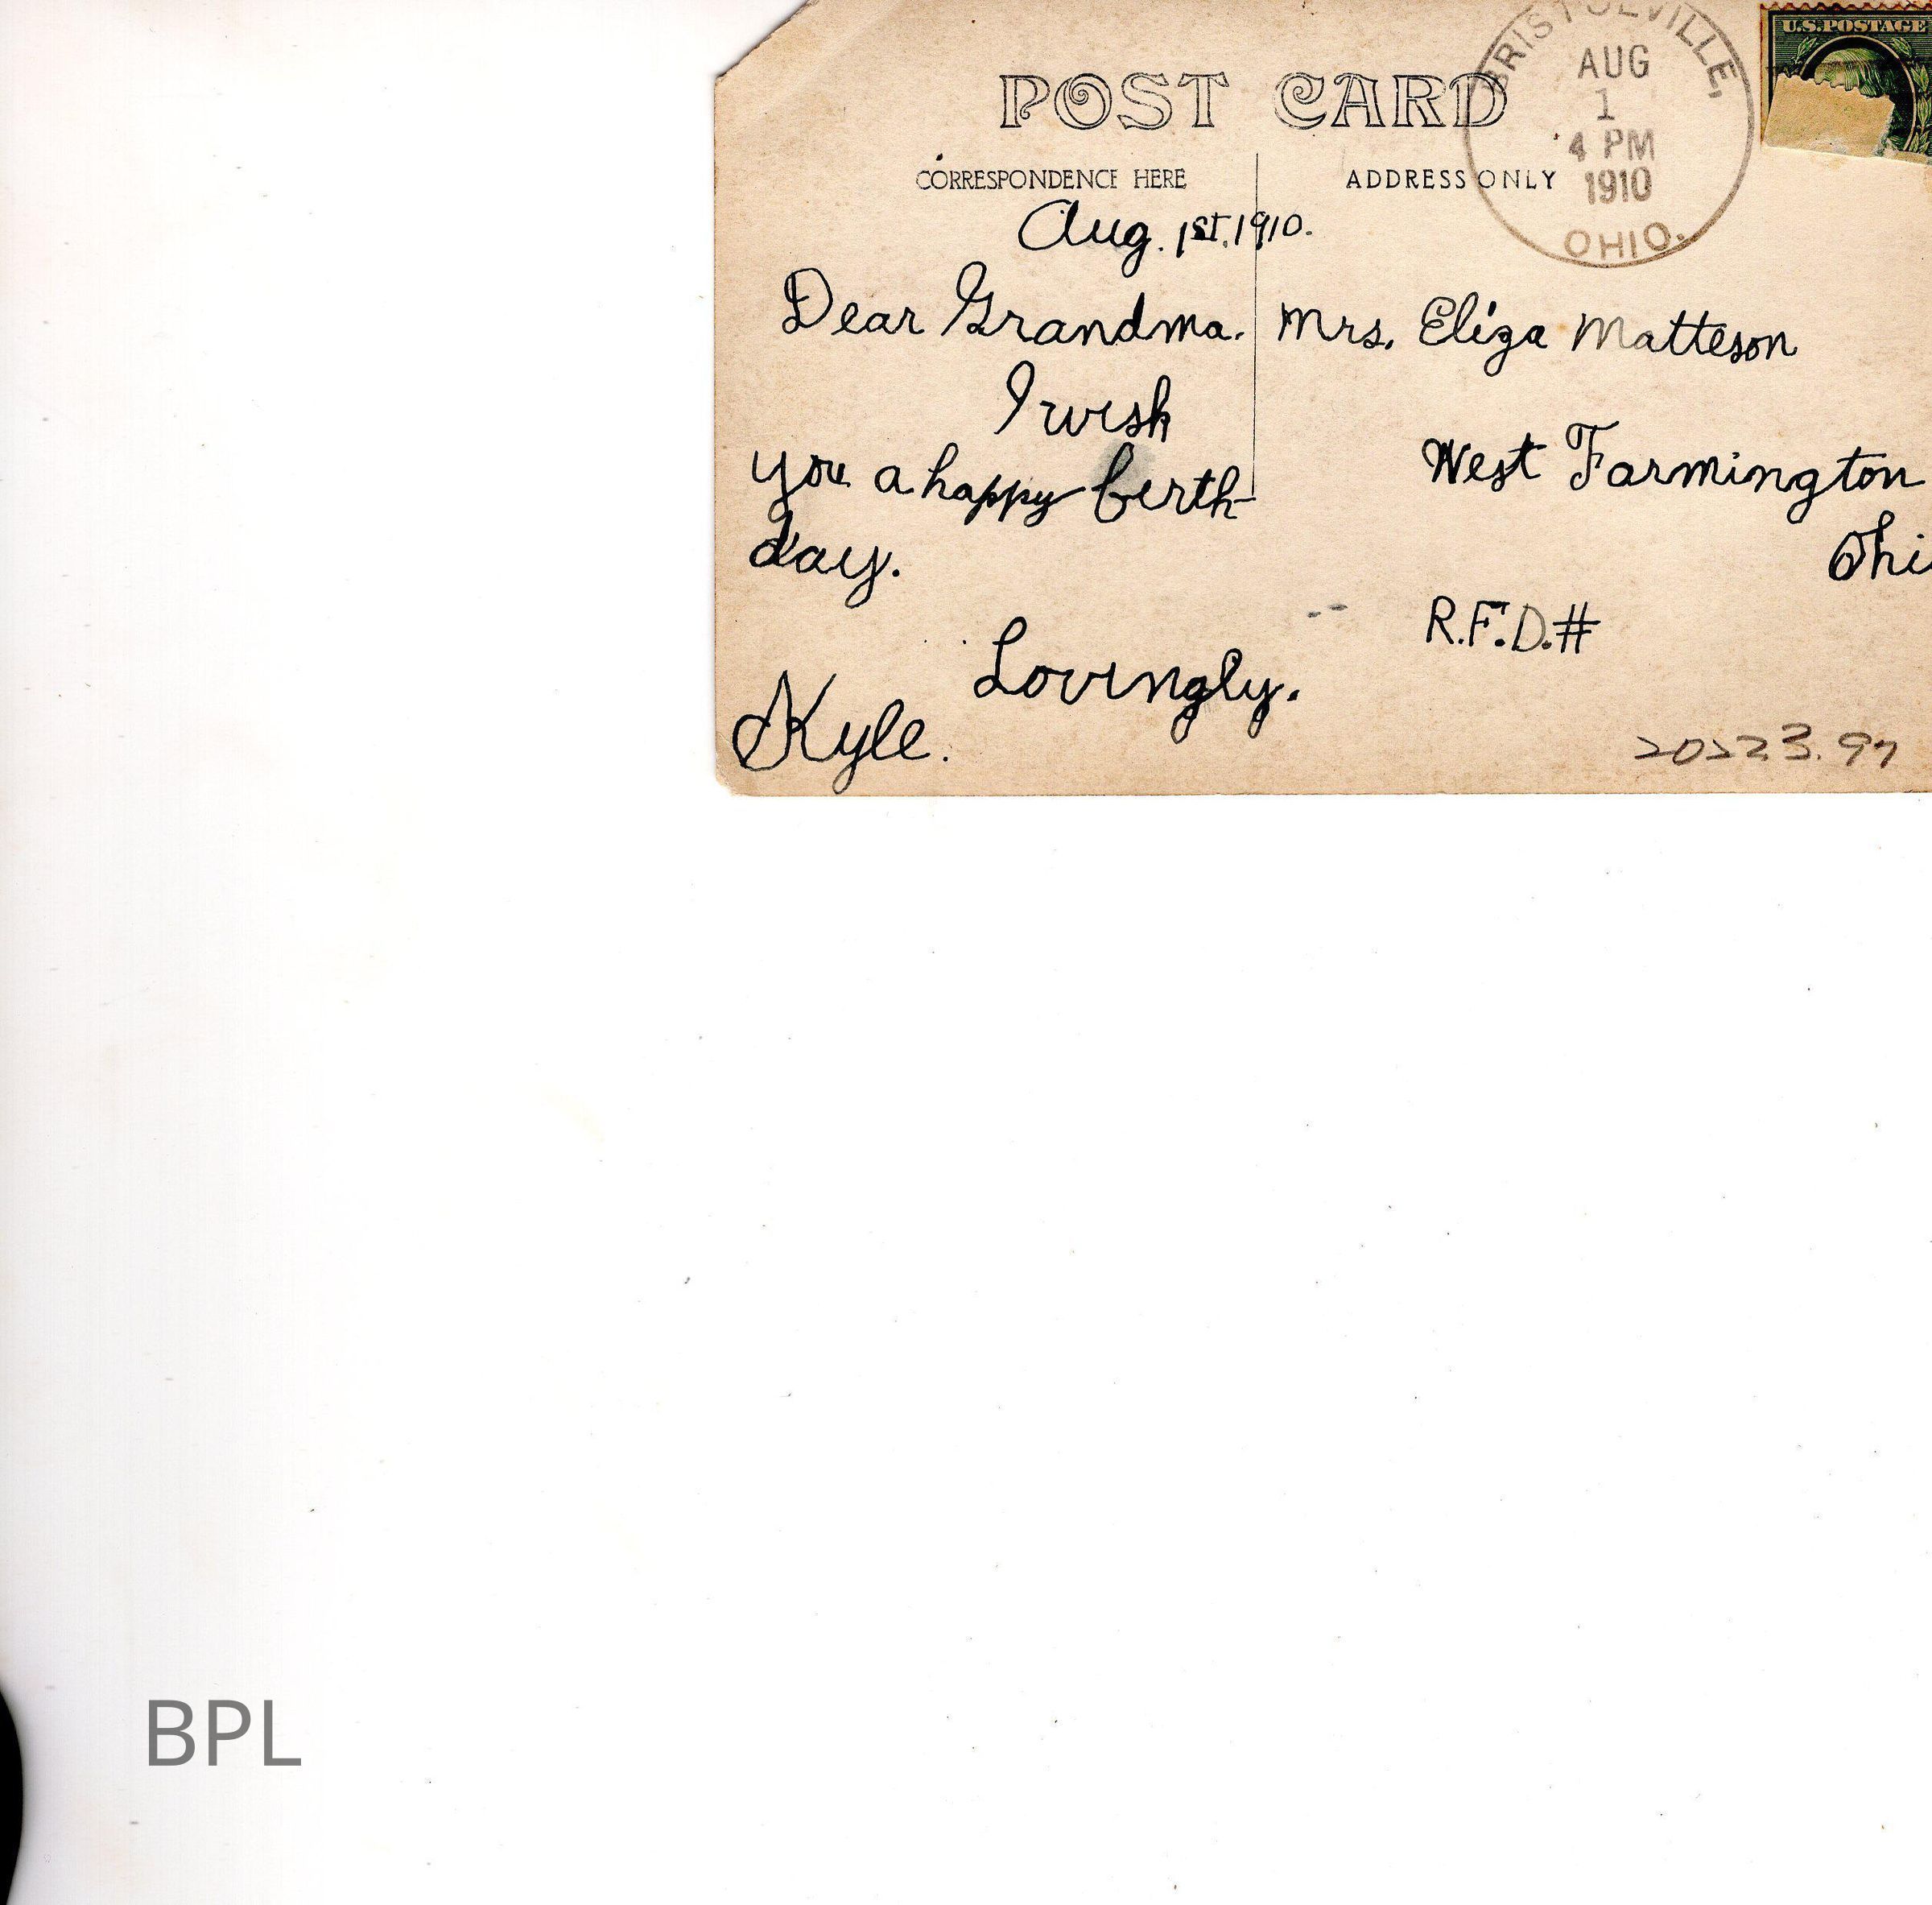 BRISTOLVILLE,
AUG
1
4 PM
1910
OHIO.
U.S. POSTAGE
POST CARD
CORRESPONDENCE HERE
ADDRESS ONLY
Aug. 1ST, 1910.
Dear Grandma.
I wish
you a happy birth-
day.
Lovingly.
Kyle.
Mrs. Eliza Matteson
West Farmington
Ohi
R.F.D.#
BPL